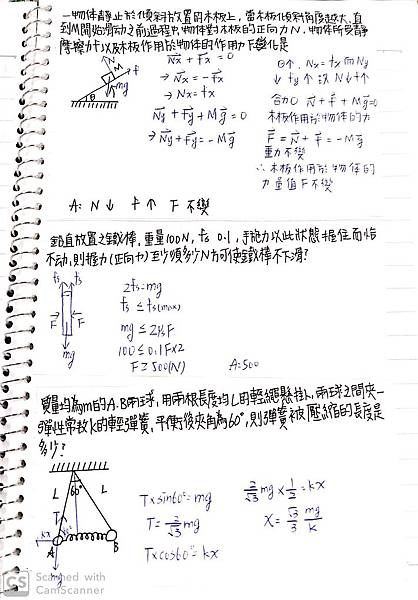 一物体靜止於傾斜放置的木板上，當木板傾斜角度越大，直
到M開始滑动之前過程中，物体對木板的正向力N，物体所受靜
摩擦力f以及木板作用於物体的作用力F變化是
Nx + fx = 0
→ Nx = -fx
→ Nx = fx
→ Ny + fy + Mg = 0
→ Ny + fy = -Mg
θ个，Nx = fx 而Ny
↓ fy 个 次 N↓f个
合力0 N + f + Mg = 0
木板作用於物体的力
F = N + f = -Mg
重力不變
∴ 木板作用於物体的
力量值F不變
N
f
M
Mg
θ
A: N↓ f↑ F 不變
鉛直放置之鐵棒，重量100N，fs 0.1，手施力以此狀態握住而恰
不动，則握力(正向力)至少須多少N方可使鐵棒不下滑？
fs fs
F F
mg
2fs = mg
fs ≤ fs(max)
mg ≤ 2μsF
100 ≤ 0.1F×2
F ≥ 500(N)
A=500
質量均為m的A、B兩球，用兩根長度均L的輕繩懸掛，兩球之間夾一
彈性常数k的輕彈簧，平衡後夾角為60°，則彈簧被壓縮的長度是
多少？
L 60° L
T
kx 60°
A B
mg
T×sin60° = mg
T = 2/√3 mg
T×cos60° = kx
2/√3 mg × 1/2 = kx
x = √3/3 mg/k
CS Scanned with
CamScanner